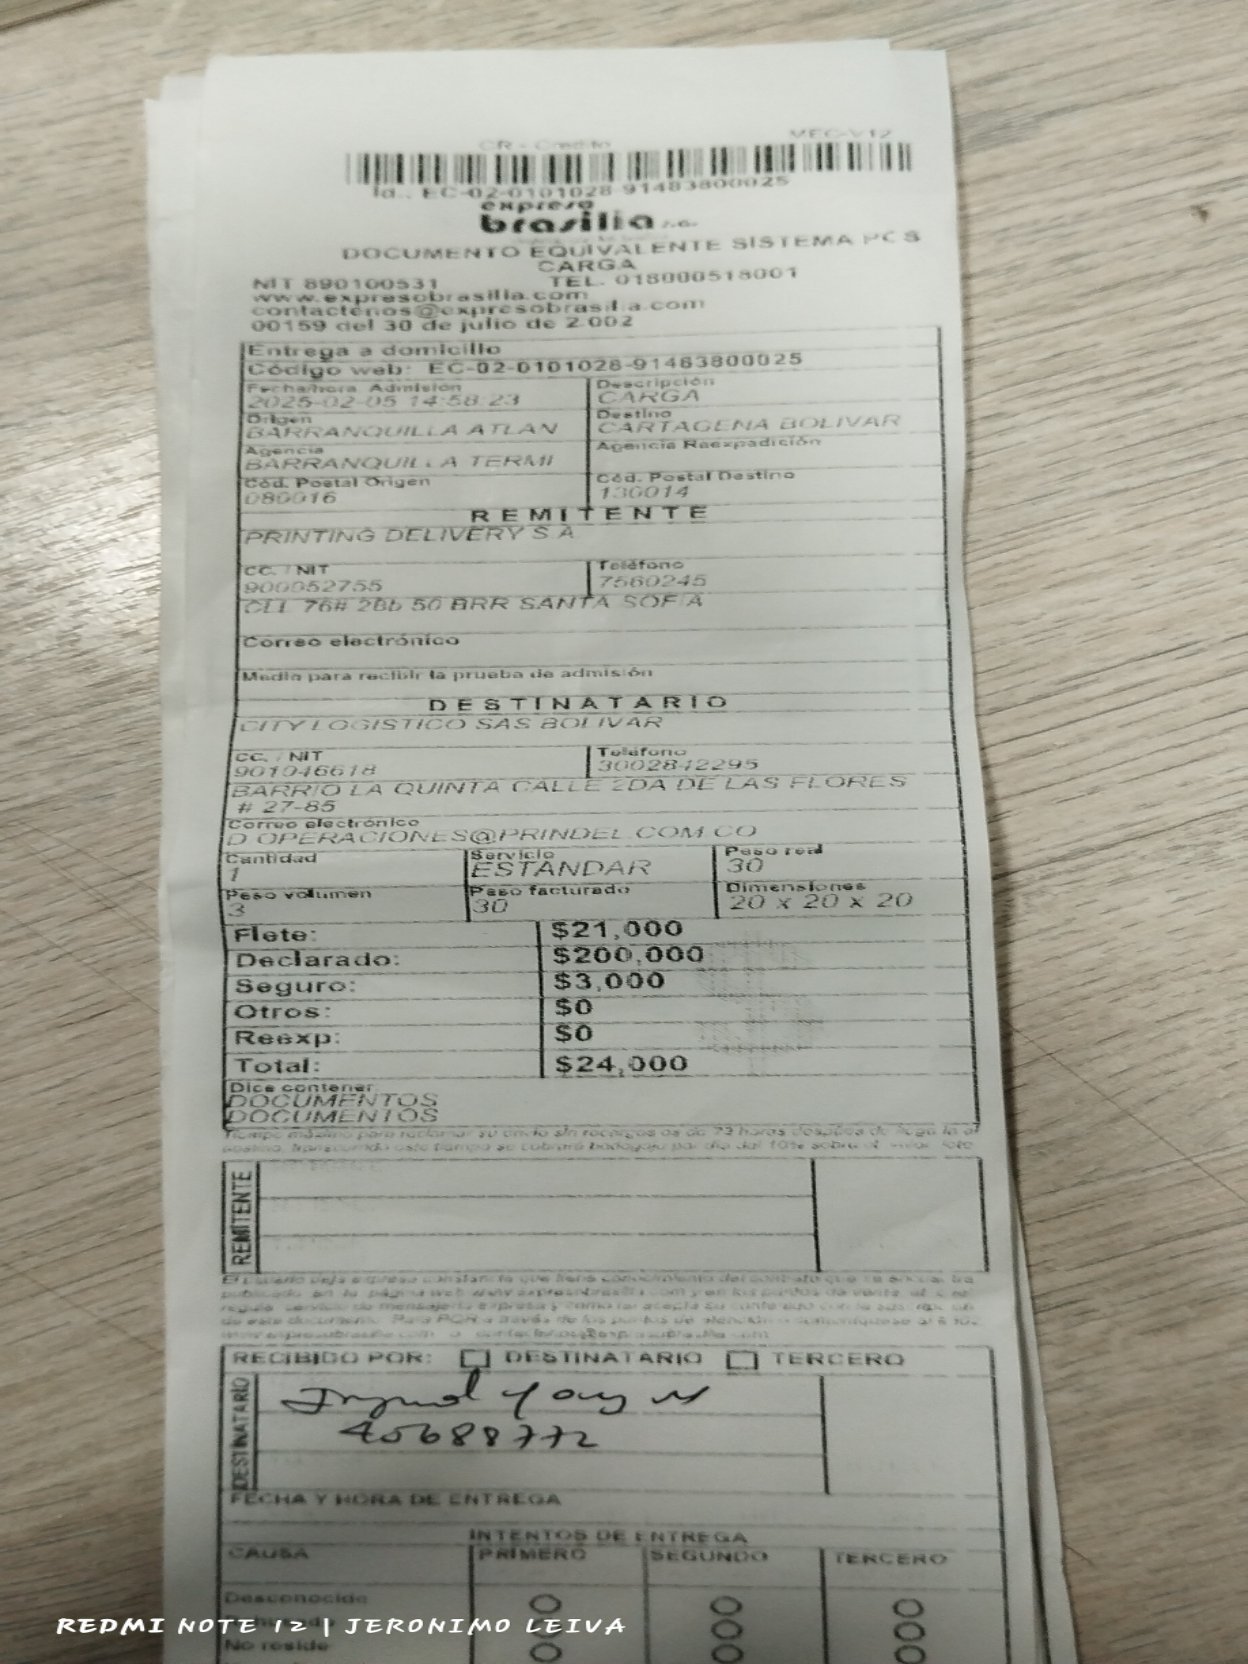 CR - Credito MEC-V12
Id.: EC-02-0101028-91483800025
expreso
brasilia S.A.
DOCUMENTO EQUIVALENTE SISTEMA PCS
CARGA
NIT 890100531 TEL. 018000518001
www.expresobrasilia.com
contactenos@expresobrasilia.com
00159 del 30 de julio de 2.002
Entrega a domicilio
Código web: EC-02-0101028-91483800025
Fecha/hora Admisión Descripción
2025-02-05 14:58:23 CARGA
Origen Destino
BARRANQUILLA ATLAN CARTAGENA BOLIVAR
Agencia Agencia Reexpedición
BARRANQUILLA TERMI
Cód. Postal Origen Cód. Postal Destino
080016 130014
REMITENTE
PRINTING DELIVERY S.A
CC. / NIT Teléfono
900052755 7560245
CLL 76# 28b 50 BRR SANTA SOFIA
Correo electrónico
Medio para recibir la prueba de admisión
DESTINATARIO
CITY LOGISTICO SAS BOLIVAR
CC. / NIT Teléfono
901046618 3002842295
BARRIO LA QUINTA CALLE 2DA DE LAS FLORES
# 27-85
Correo electrónico
D.OPERACIONES@PRINDEL.COM.CO
Cantidad Servicio Peso real
1 ESTANDAR 30
Peso volumen Peso facturado Dimensiones
3 30 20 x 20 x 20
Flete: $21,000
Declarado: $200,000
Seguro: $3,000
Otros: $0
Reexp: $0
Total: $24,000
Dice contener
DOCUMENTOS
DOCUMENTOS
Tiempo máximo para reclamar su envío sin recargos es de 72 horas después de
REMITENTE
RECIBIDO POR: DESTINATARIO TERCERO
DESTINATARIO
45688772
FECHA Y HORA DE ENTREGA
INTENTOS DE ENTREGA
CAUSA PRIMERO SEGUNDO TERCERO
Desconocido
No reside
REDMI NOTE 12 | JERONIMO LEIVA